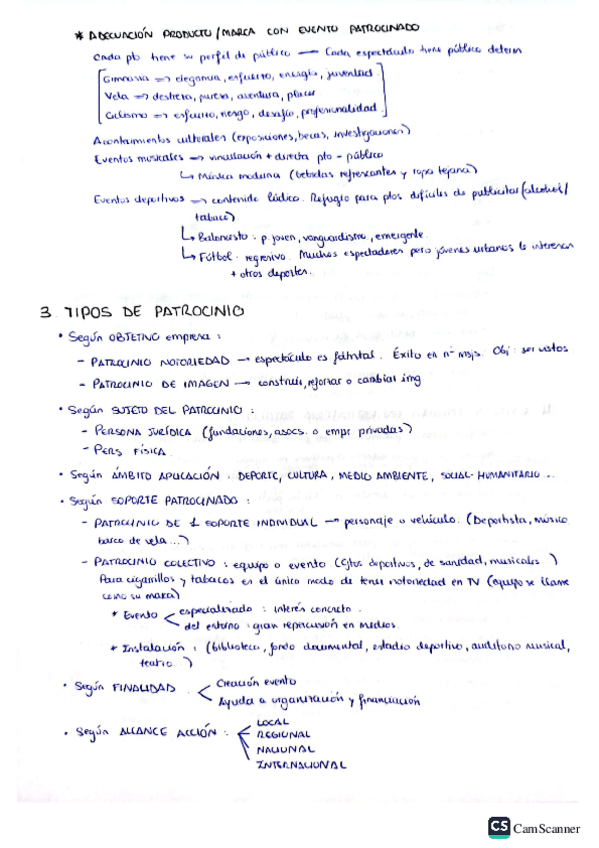 * ADECUACIÓN PRODUCTO/MARCA CON EVENTO PATROCINADO
Cada pb tiene su perfil de público → Cada espectáculo tiene público determ
Gimnasia => elegancia, esfuerzo, energía, juventud.
Vela => destreza, pureza, aventura, placer
Ciclismo => esfuerzo, riesgo, desafío, profesionalidad.
Acontecimientos culturales (exposiciones, becas, investigaciones)
Eventos musicales => vinculación + directa pto - público
↳ Música moderna (bebidas refrescantes y ropa tejana)
Eventos deportivos => contenido lúdico. Refugio para ptos difíciles de publicitar (alcohol/
tabaco)
↳ Baloncesto: p. joven, vanguardismo, emergente.
↳ Fútbol: regresivo. Muchos espectadores pero jóvenes urbanos le interesan
+ otros deportes.
3. TIPOS DE PATROCINIO
• Según OBJETIVO empresa:
- PATROCINIO NOTORIEDAD → espectáculo es fdmtal. Éxito en nº msjs. Obj: ser vistos
- PATROCINIO DE IMAGEN → construir, reforzar o cambiar img
• Según SUJETO DEL PATROCINIO:
- PERSONA JURÍDICA (fundaciones, asocs. o empr. privadas)
- PERS. FÍSICA.
• Según ÁMBITO APLICACIÓN: DEPORTE, CULTURA, MEDIO AMBIENTE, SOCIAL-HUMANITARIO...
• Según SOPORTE PATROCINADO:
- PATROCINIO DE 1 SOPORTE INDIVIDUAL → personaje o vehículo. (Deportista, músico
barco de vela...)
- PATROCINIO COLECTIVO: equipo o evento (deportivos, de sanidad, musicales)
Para cigarrillos y tabacos es el único modo de tener notoriedad en TV (equipo se llame
como su marca)
* Evento < especializado: interés concreto.
del entorno: gran repercusión en medios.
* Instalación: (biblioteca, fondo documental, estadio deportivo, auditorio musical,
teatro)
• Según FINALIDAD < Creación evento
Ayuda a organización y financiación
• Según ALCANCE ACCIÓN: LOCAL
REGIONAL
NACIONAL
INTERNACIONAL
CS CamScanner